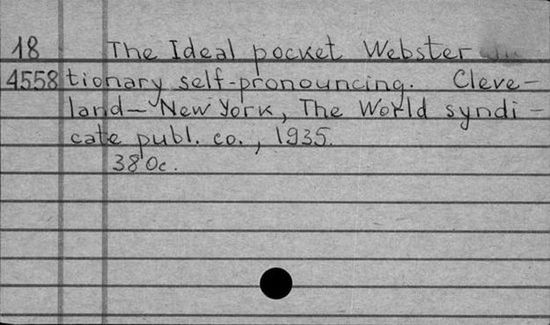 18 The Ideal pocket Webster
4558 tionary self-pronouncing. Cleve-
land - New York, The World syndi-
cate publ. co., 1935.
380c.